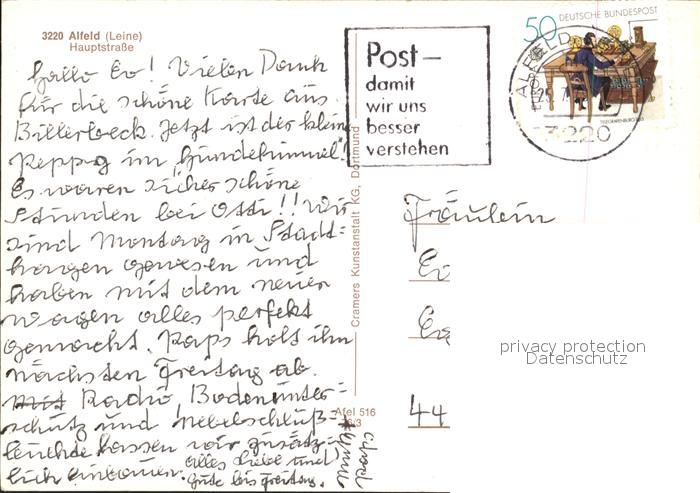 3220 Alfeld (Leine)
Hauptstraße
Hallo Ev! Vielen Dank
für die schöne Karte aus
Billerbeck. Jetzt ist der kleine
Peppo im Hundehimmel!
Es waren sicher schöne
Stunden bei Otti!! Wir
sind Montag in Stadt=
hagen gewesen und
haben mit dem neuen
Wagen alles perfekt
gemacht. Paps holt ihn
nächsten Freitag ab.
Mit Radio, Bodenunter=
schutz und Nebelschluß=
leuchte lassen wir zusätz=
lich einbauen. alles Liebe und
Gute bis Freitag.
Cramers Kunstanstalt KG, Dortmund
Afel 516
Post–
damit
wir uns
besser
verstehen
50 DEUTSCHE BUNDESPOST
ALFELD
3220
Fräulein
44
privacy protection
Datenschutz